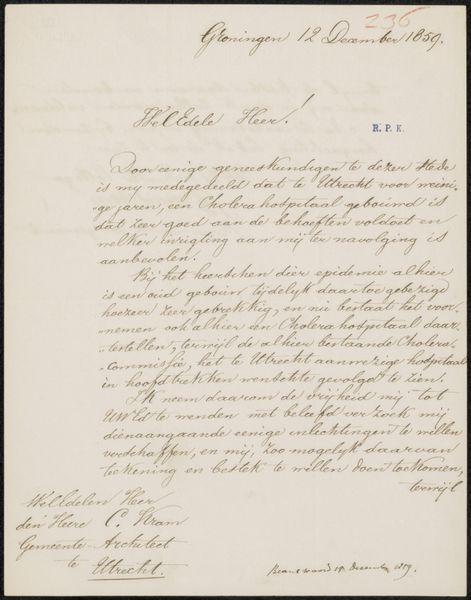 236
Groningen 12 December 1859.
WelEdele Heer!
R.P.K.
Door eenige geneeskundigen te dezer stede
is my medegedeeld dat te Utrecht voor weini-
ge jaren, een Cholera hospitaal gebouwd is
dat zeer goed aan de behoeften voldoet en
welker inrigting aan mij ter navolging is
aanbevolen.
Bij het heerschen dier epidemie alhier
is een oud gebouw tijdelijk daartoe gebezigd
hoezeer zeer gebrekkig, en nu bestaat het voor-
nemen ook alhier een Cholera hospitaal daar
testellen, terwijl de alhier bestaande Cholera-
commissie, het te Utrecht aanwezige hospitaal
in hoofdtrekken wenschte gevolgd te zien.
Ik neem daarom de vrijheid mij tot
UWEd te wenden met beleefd verzoek mij
dienaangaande eenige inlichtingen te willen
verschaffen, en mij, zoo mogelijk daarvan
teekening en bestek te willen doen toekomen,
terwijl
WelEdelen Heer
den Heere C. Kram
Gemeente-Architect
te
Utrecht.
Beantwoord 14 December 1859.